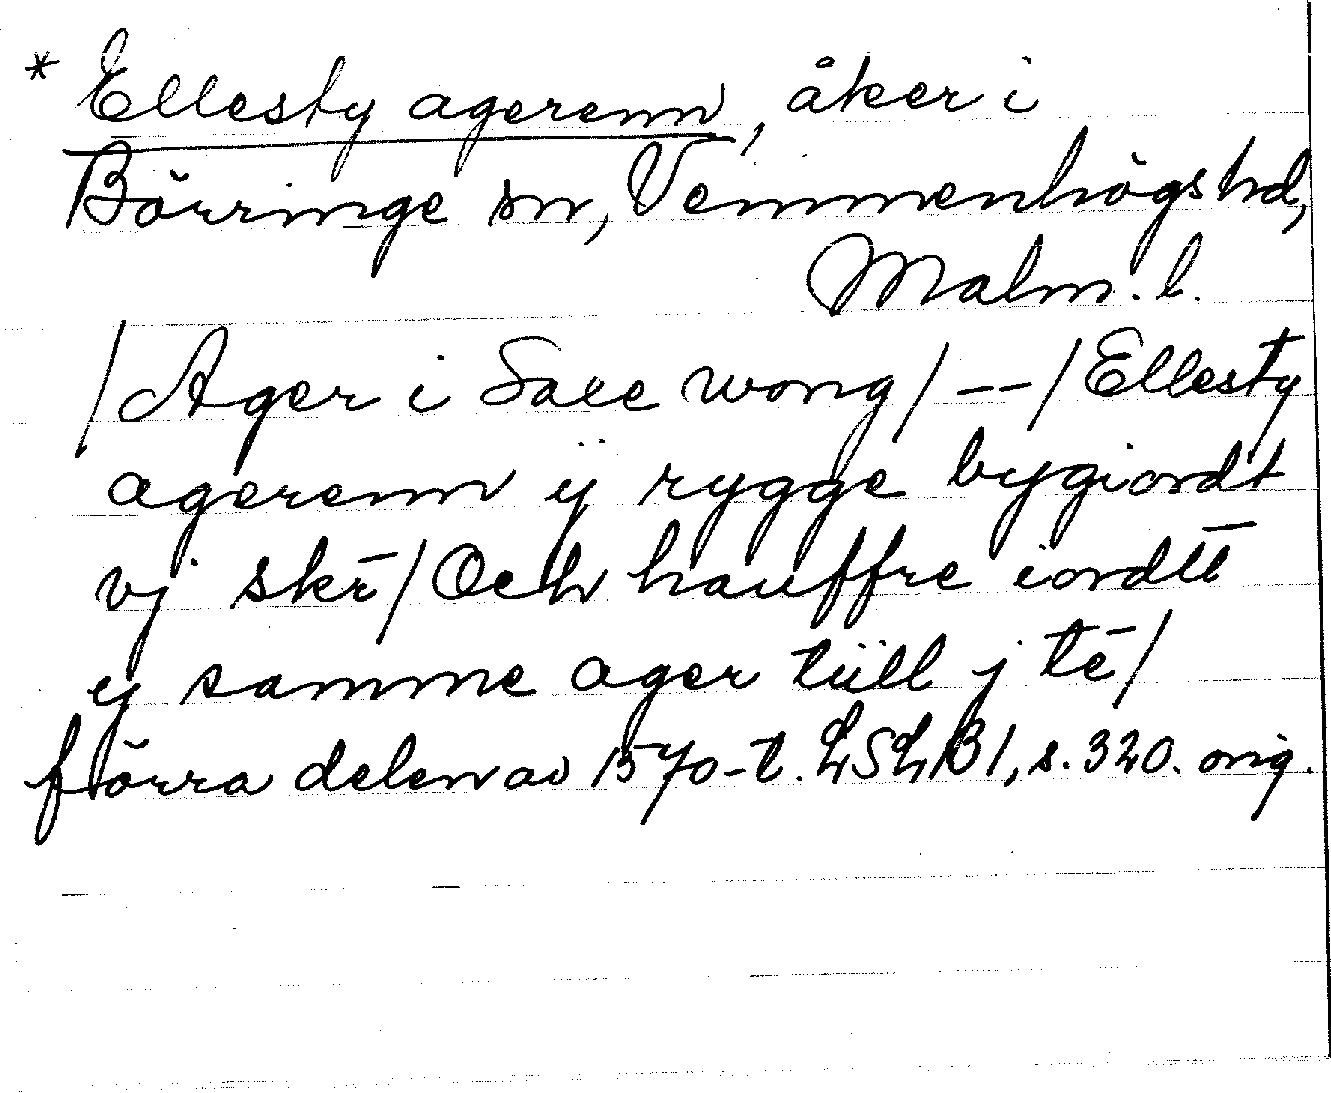 * Ellesty agerenn, åker i
Börringe sn, Vemmenhögs hd,
Malm. l.
/Ager i Saxe wong/--/Ellesty
agerenn ij rygge bygiordt
vj skē/Och hauffre iordtt
ij samme ager tiill j tē/
förra delen av 1570-t. LSLB1, s. 320. orig.